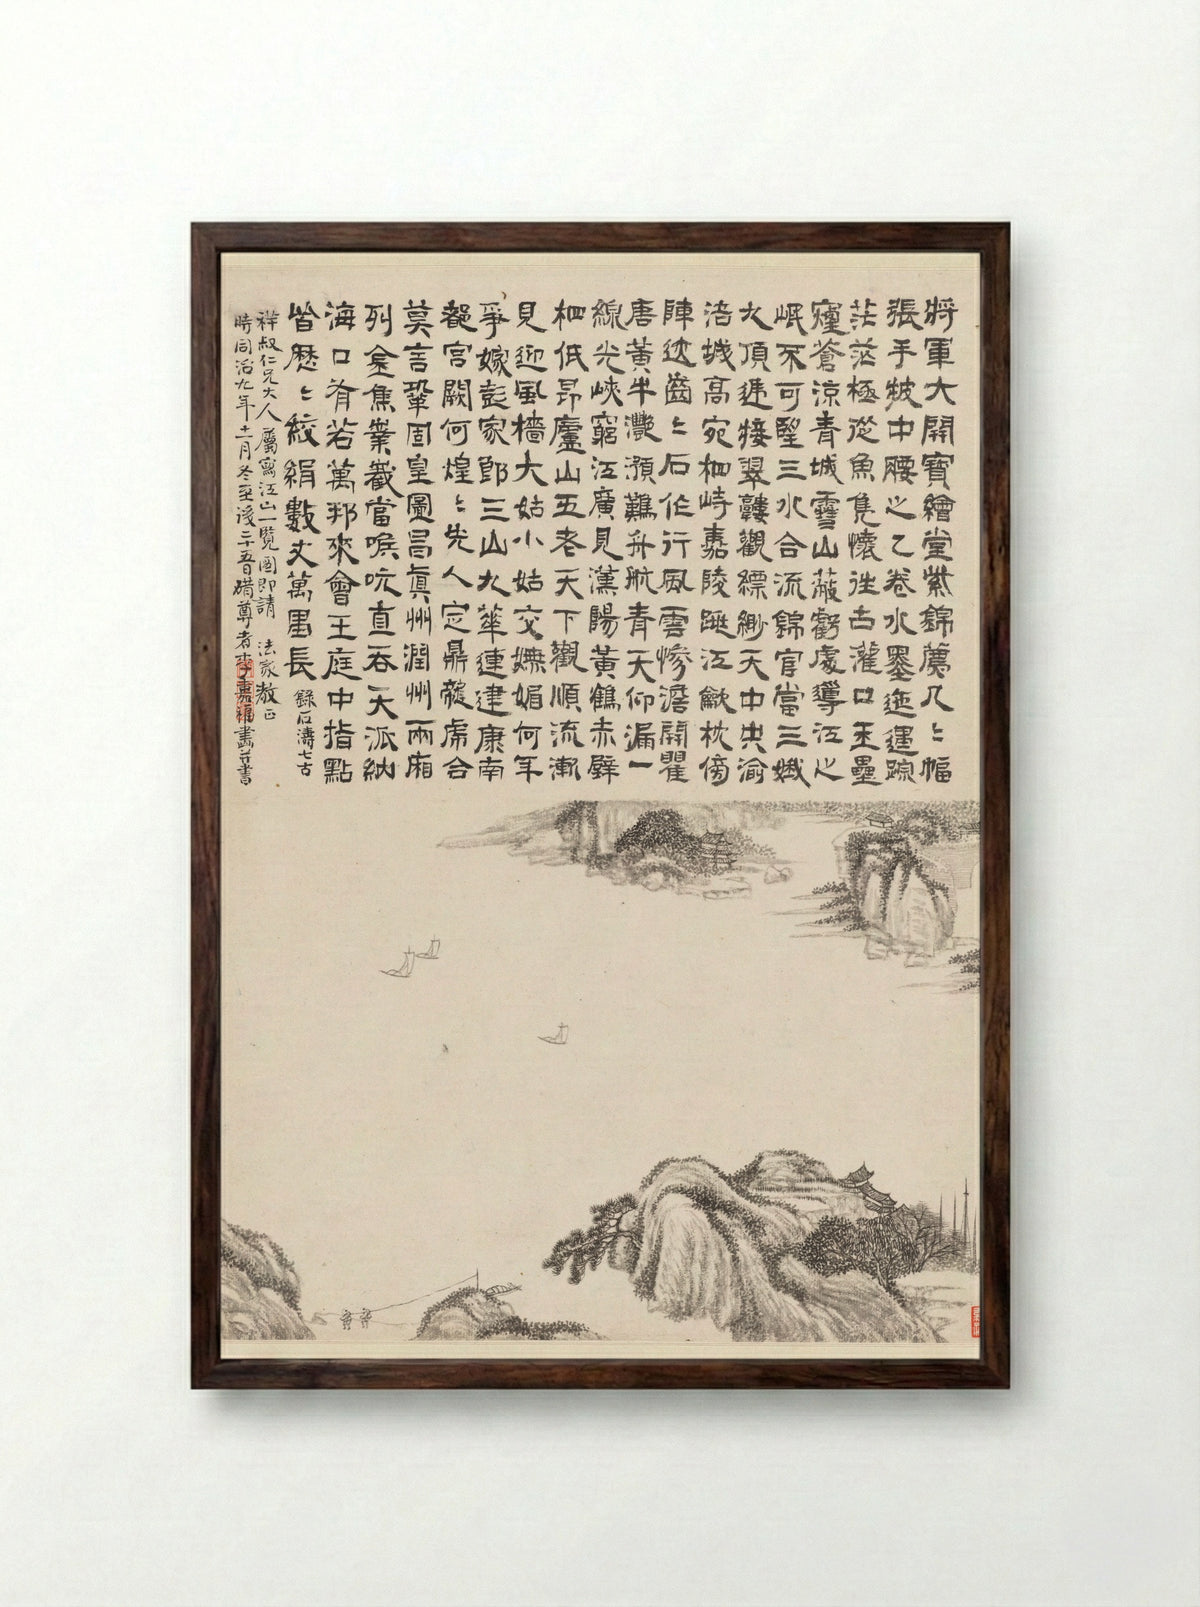 將軍大開寶繪堂紫錦薦几〻幅
張手披中腰之乙卷水墨迤邐踪
茫茫極從魚鳧懷往古灌口玉壘
寔蒼涼青城雪山蔽虧處導江之
岷不可望三水合流錦官當三峨
大頂遞接翠鬟觀縹緲天中央渝
涪城高宛相峙嘉陵跳江歛枕傍
陣迹齒〻石作行風雲慘澹開瞿
唐黃牛灩澦難舟航青天仰漏一
線光峽窮江廣見漢陽黃鶴赤壁
相低昂廬山五老天下觀順流漸
見迎風檣大姑小姑交嫵媚何年
爭嫁彭家郎三山九華連建康南
都宮闕何煌〻先人定鼎龍虎合
莫言鞏固皇圖昌真州潤州兩廂
列金焦業嶻當喉吭直吞天派納
海口有若萬邦來會王庭中指點
皆歷〻絞絹數丈萬里長 錄石濤七古
祥叔仁兄大人屬寫江山一覽圖即請 法家教正
時同治九年十一月冬至後二 李嘉福畫并書